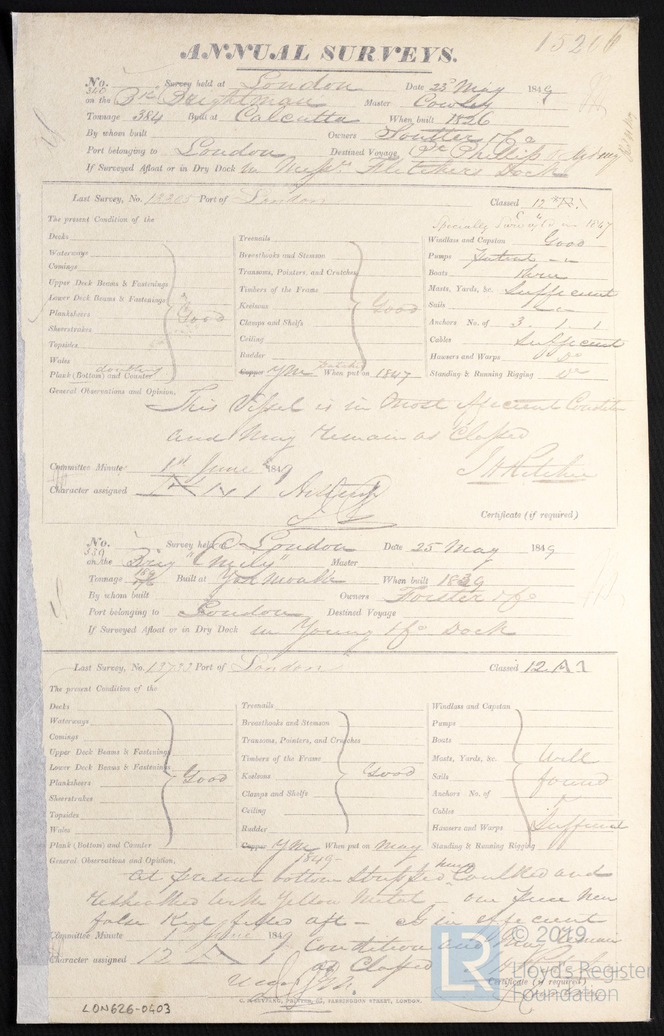 15206
ANNUAL SURVEYS.
No. 340 Survey held at London Date 23d May 1849
on the Bk Brightman Master Cowley
Tonnage 384 Built at Calcutta When built 1826
By whom built Owners &Co
Port belonging to London Destined Voyage Pt Phillip &
If Surveyed Afloat or in Dry Dock in Messrs Fletchers Dock
Last Survey, No. 13205 Port of London Classed 12
Specially 1847
The present Condition of the
Decks
Waterways
Comings
Upper Deck Beams & Fastenings
Lower Deck Beams & Fastenings
Planksheers
Sheerstrakes
Topsides
Wales
Plank (Bottom) and Counter doubling
Good
Treenails
Breasthooks and Stemson
Transoms, Pointers, and Crutches
Timbers of the Frame
Keelsons
Clamps and Shelfs
Ceiling
Rudder
Copper YM When put on 1847
Good
Windlass and Capstan Good
Pumps Patent
Boats three
Masts, Yards, &c. Sufficient
Sails
Anchors No. of 3 . 1 . 1
Cables Sufficient
Hawsers and Warps Do
Standing & Running Rigging Do
General Observations and Opinion,
This Vessel is in most efficient Condition
and may remain as Classed
Committee Minute 1st June 1849
Character assigned
Certificate (if required)
No. 339 Survey held at London Date 25 May 1849
on the Brig "Emily" Master
Tonnage Built at When built 1839
By whom built Owners Forster & Co
Port belonging to London Destined Voyage
If Surveyed Afloat or in Dry Dock in Young & Co Dock
Last Survey, No. 13793 Port of London Classed 12 A 1
The present Condition of the
Decks
Waterways
Comings
Upper Deck Beams & Fastenings
Lower Deck Beams & Fastenings
Planksheers
Sheerstrakes
Topsides
Wales
Plank (Bottom) and Counter
Good
Treenails
Breasthooks and Stemson
Transoms, Pointers, and Crutches
Timbers of the Frame
Keelsons
Clamps and Shelfs
Ceiling
Rudder
Copper YM When put on May
1849
Good
Windlass and Capstan
Pumps
Boats
Masts, Yards, &c.
Sails
Anchors No. of
Cables
Hawsers and Warps
Standing & Running Rigging
Well
found
&
Sufficient
General Observations and Opinion,
At present bottom Stripped Caulked and
resheathed with Yellow Metal - one piece New
false Keel fitted aft - is in efficient
Committee Minute 1st June 1849 Condition and may remain
Character assigned 12 A 1 as Classed
Certificate (if required)
LON626-0403
© 2019
LR
Lloyd's Register
Foundation